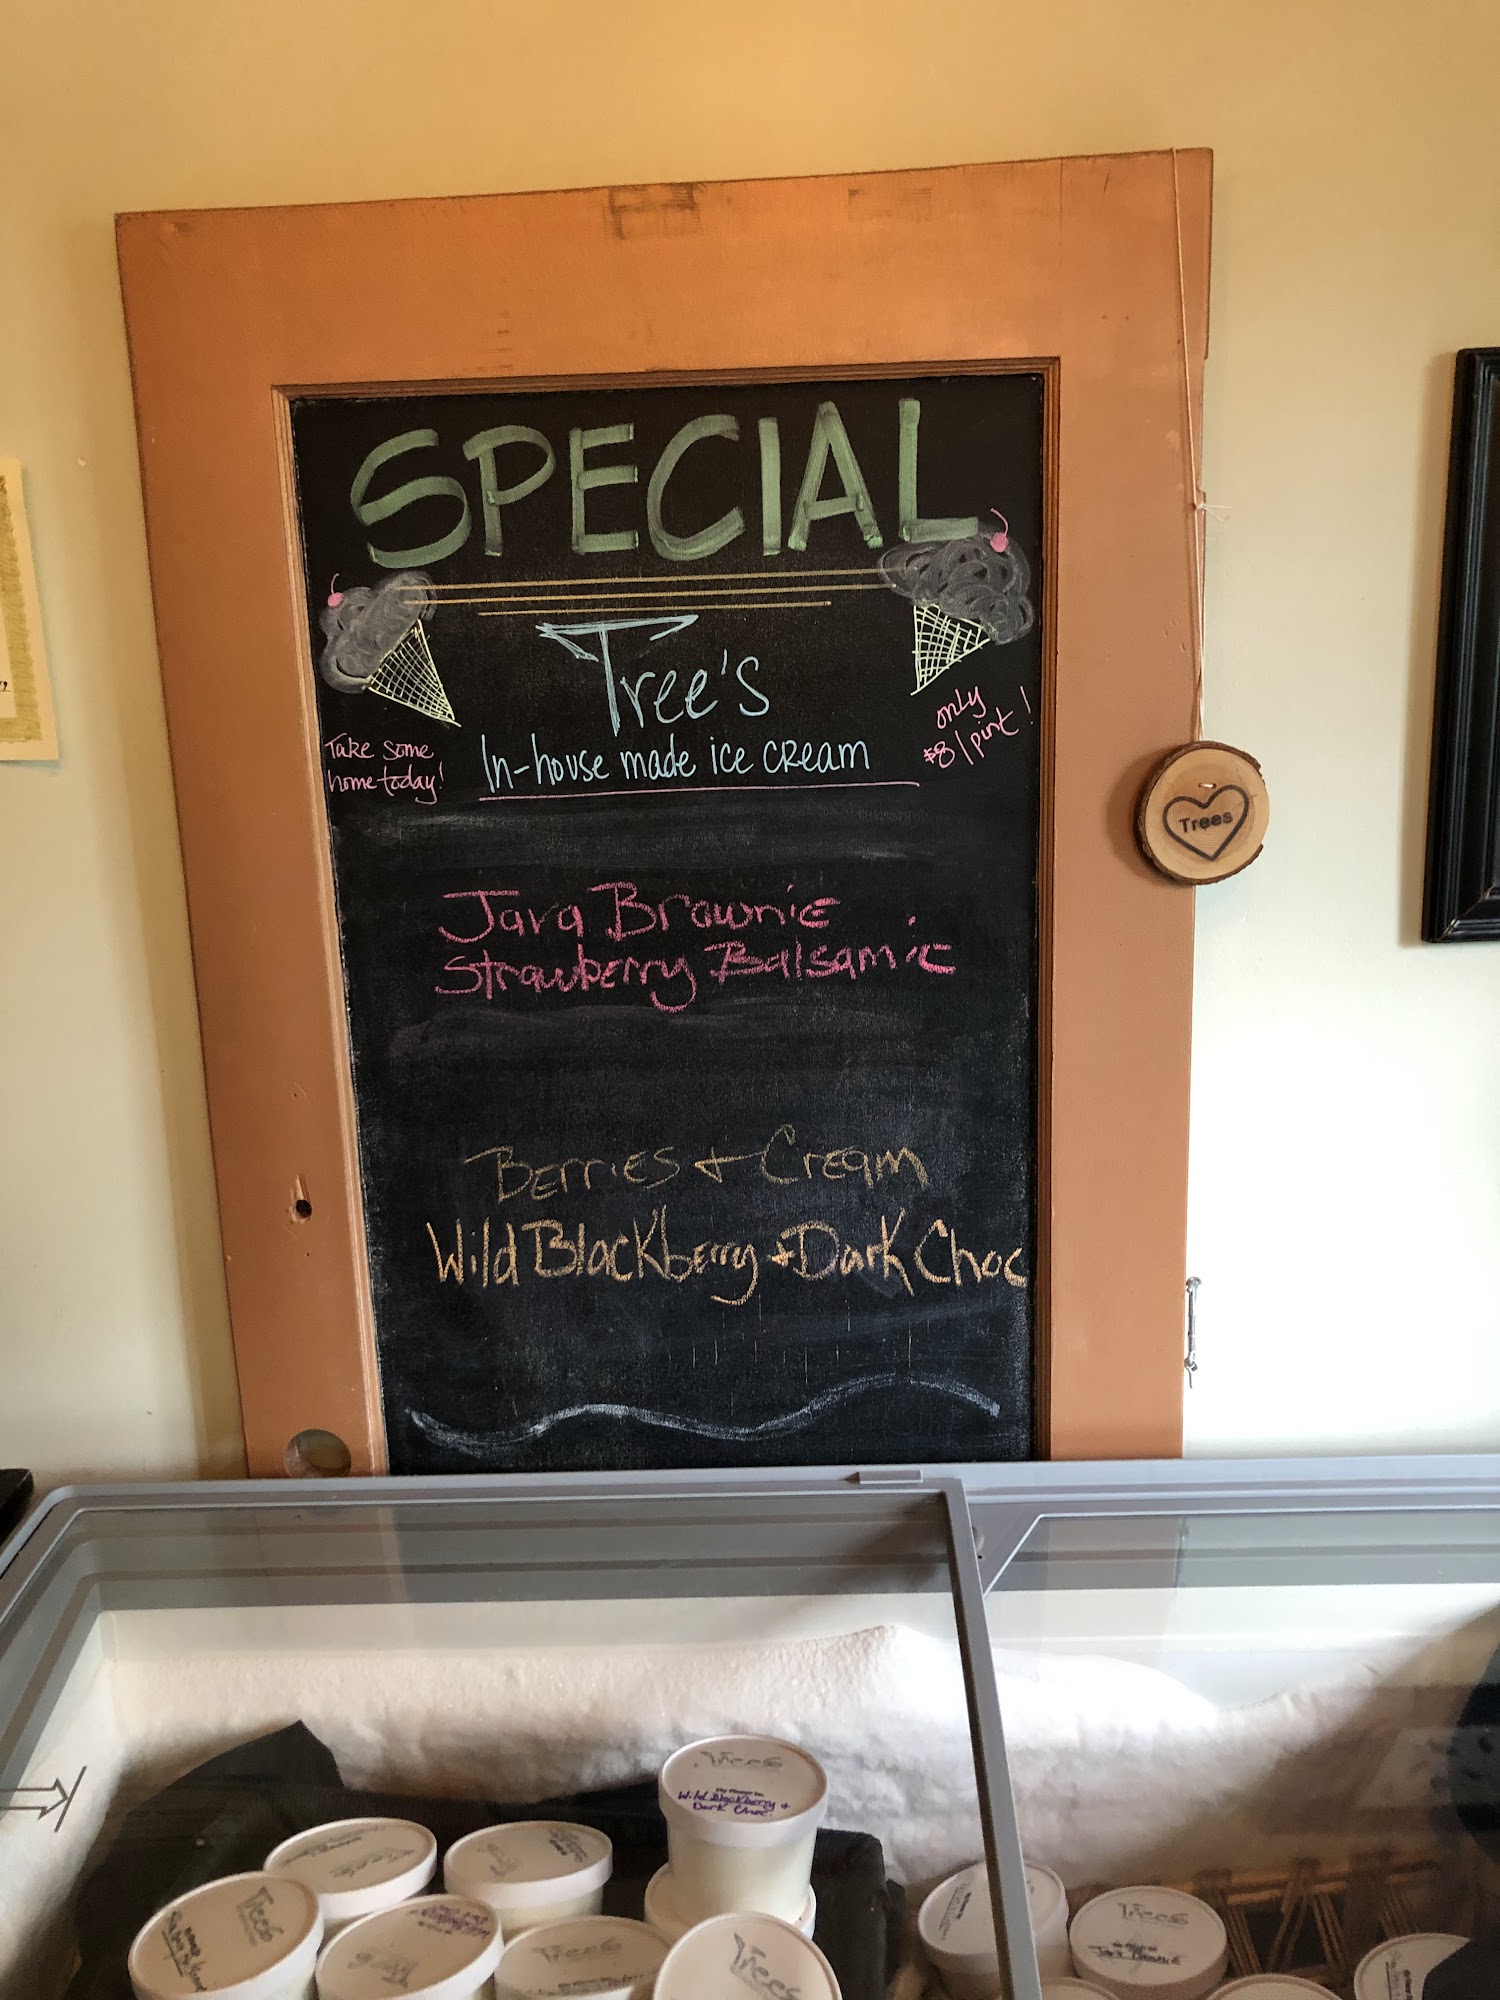 SPECIAL
Tree's
In-house made ice cream
Take some
home today!
only
$8/pint!
Trees
Java Brownie
Strawberry Balsamic
Berries + Cream
Wild Blackberry + Dark Choc
Trees
Wild Blackberry +
Dark Choc.
Trees
Trees
Trees
Trees
Java Brownie
Trees